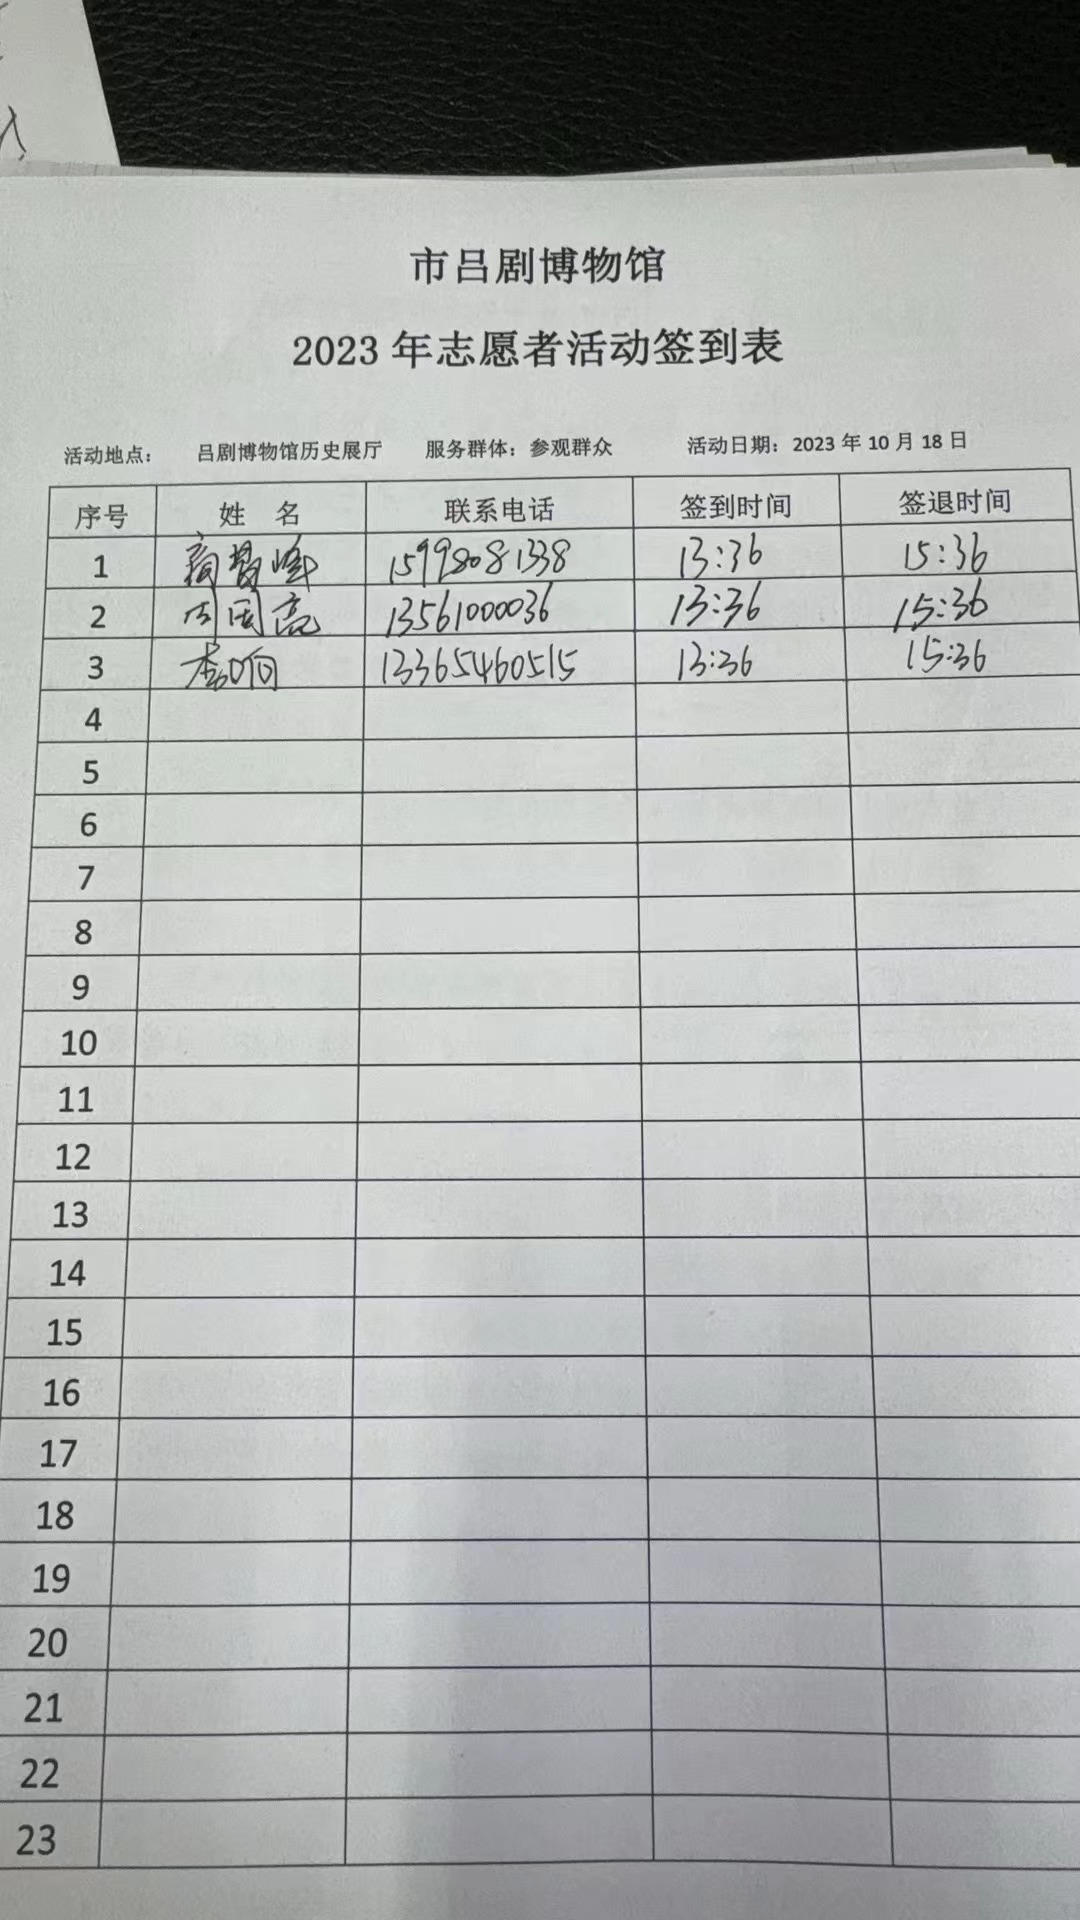 市吕剧博物馆
2023 年志愿者活动签到表
活动地点： 吕剧博物馆历史展厅 服务群体：参观群众 活动日期：2023 年 10 月 18 日
序号 姓 名 联系电话 签到时间 签退时间
1 15998081338 13:36 15:36
2 周国亮 13561000036 13:36 15:36
3 李响 13365460515 13:36 15:36
4
5
6
7
8
9
10
11
12
13
14
15
16
17
18
19
20
21
22
23